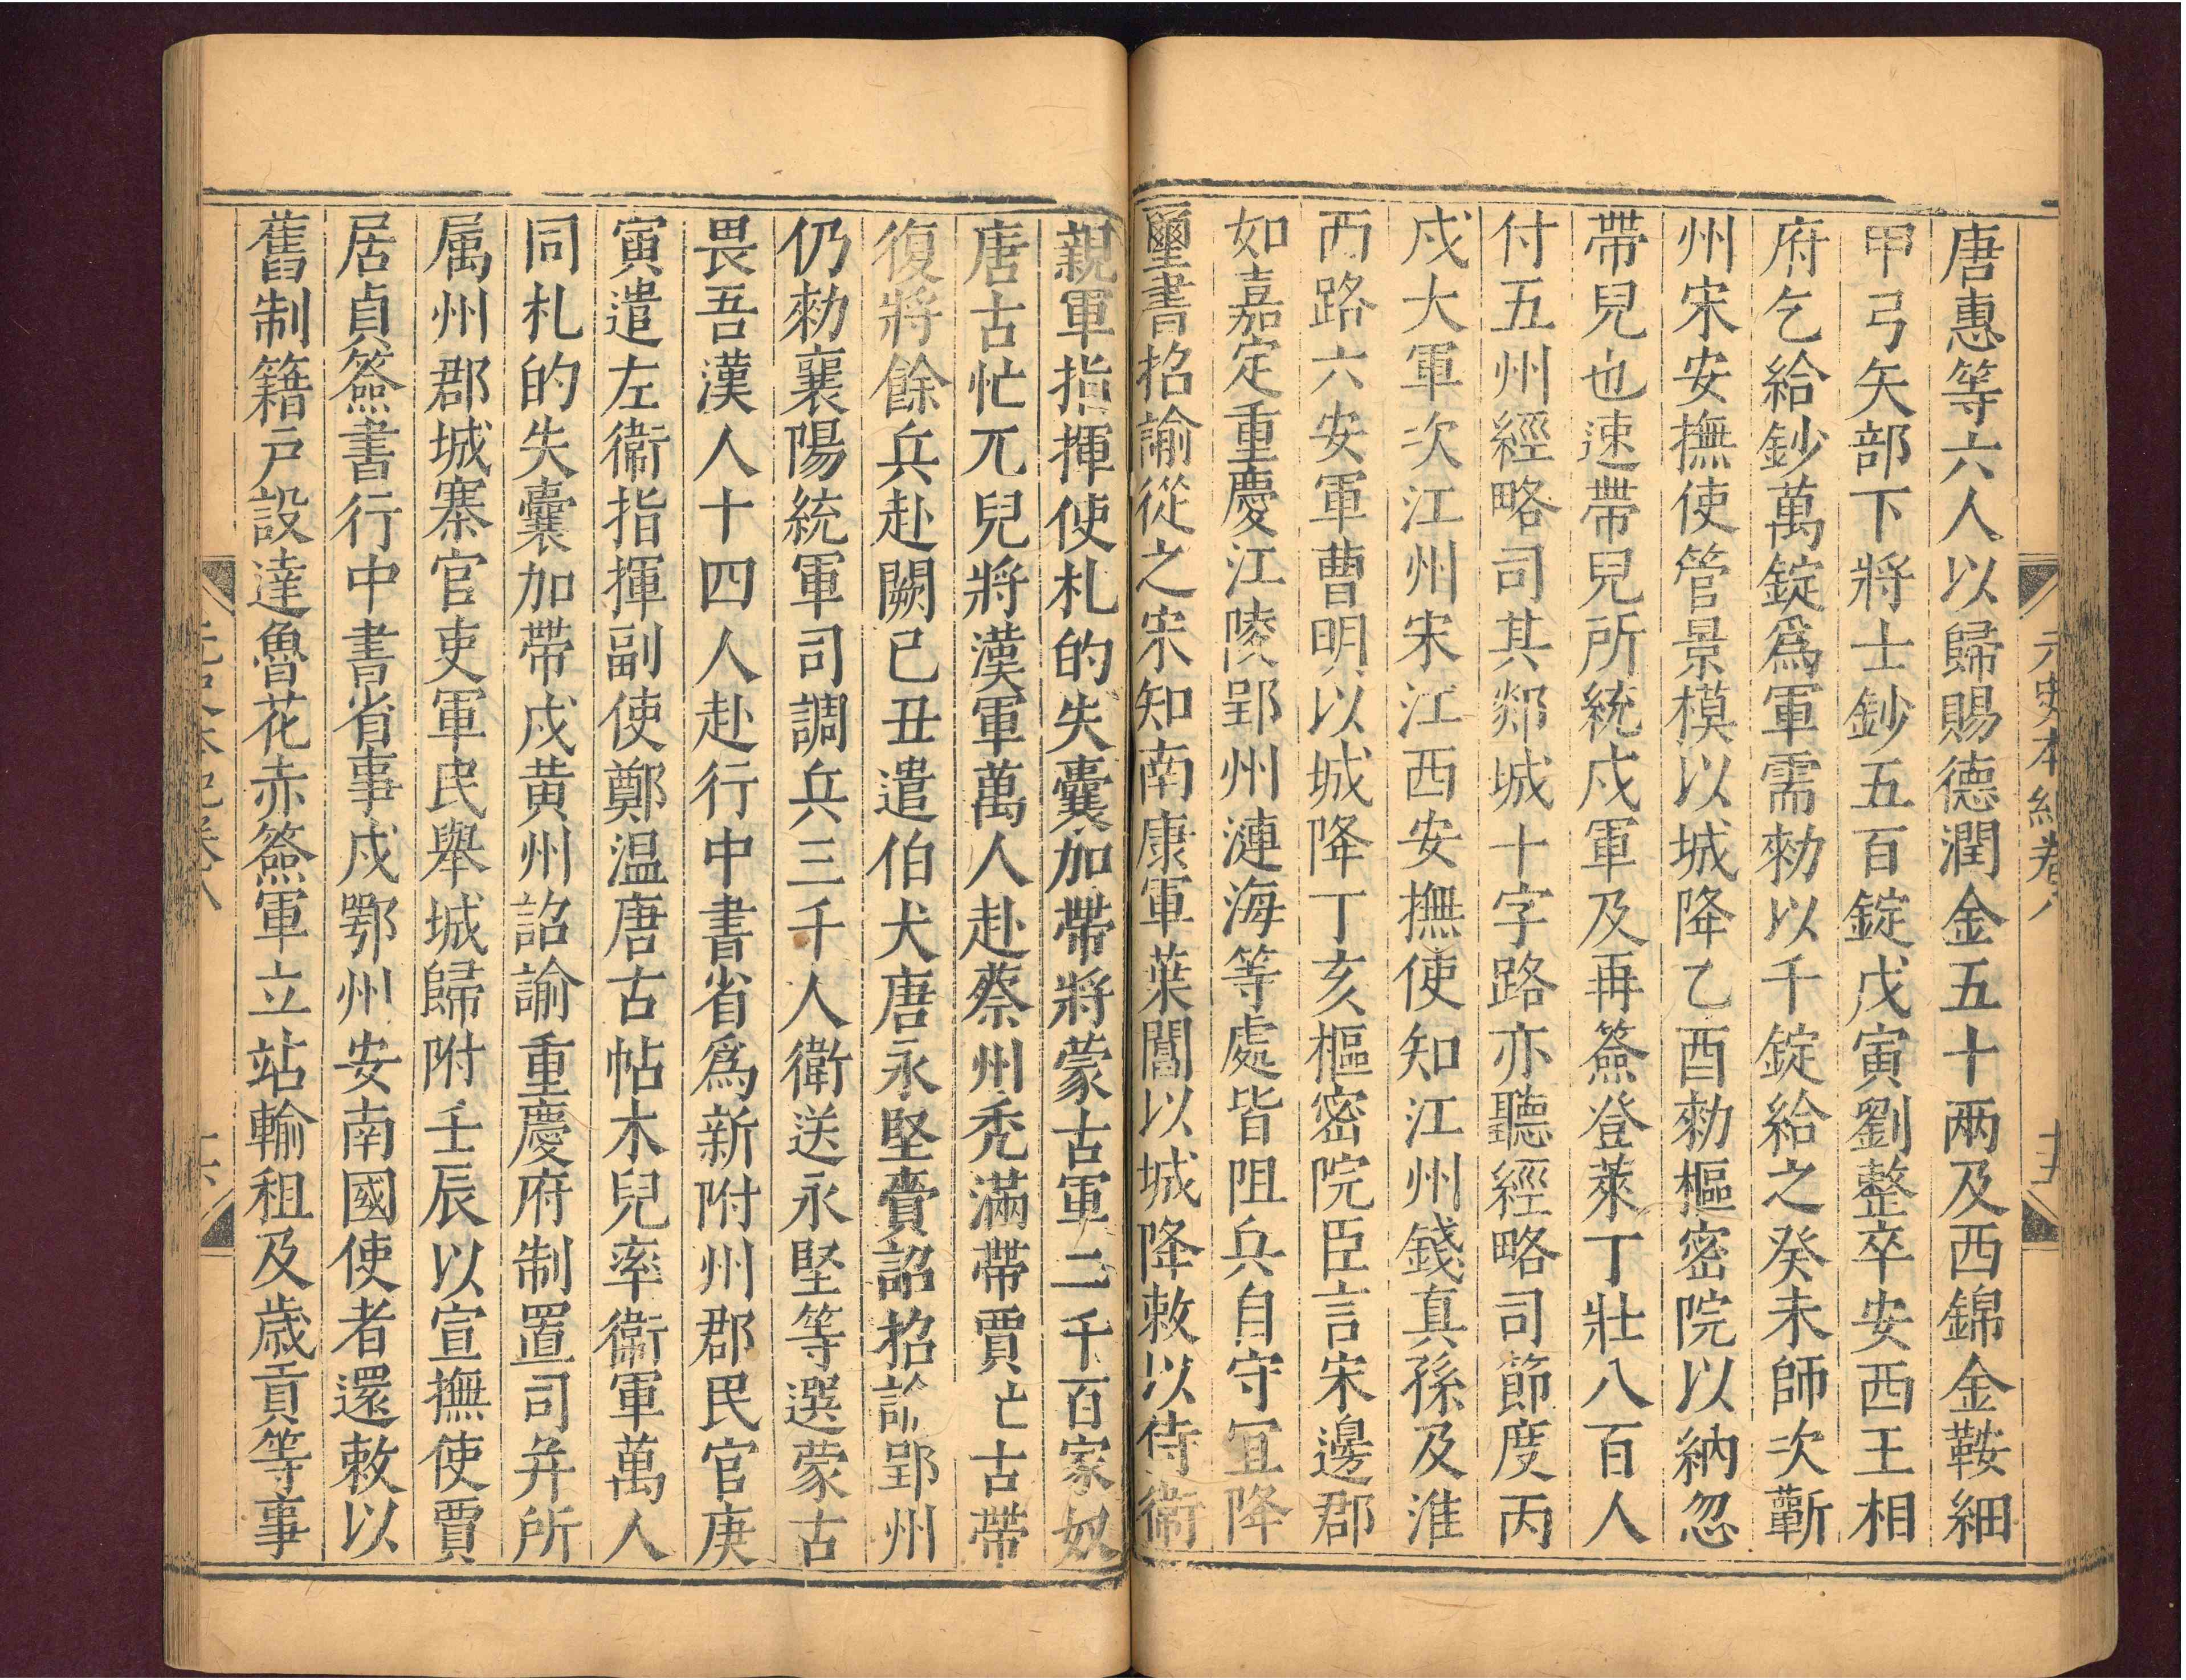 元史本紀卷八
唐惠等六人以歸賜德潤金五十兩及西錦金鞍細
甲弓矢部下將士鈔五百錠戊寅劉整卒安西王相
府乞給鈔萬錠爲軍需勑以千錠給之癸未師次蘄
州宋安撫使管景模以城降乙酉勑樞密院以納忽
帶兒也速帶兒所統戍軍及再簽登萊丁壯八百人
付五州經略司其郯城十字路亦聽經略司節度丙
戍大軍次江州宋江西安撫使知江州錢真孫及淮
西路六安軍曹明以城降丁亥樞密院臣言宋邊郡
如嘉定重慶江陵郢州漣海等處皆阻兵自守冝降
璽書招諭從之宋知南康軍葉閶以城降敕以侍衞
親軍指揮使札的失囊加帶將蒙古軍二千百家奴
唐古忙兀兒將漢軍萬人赴蔡州禿滿帶賈亡古帶
復將餘兵赴闕己丑遣伯犬唐永堅賫詔招諭郢州
仍勑襄陽統軍司調兵三千人衞送永堅等選蒙古
畏吾漢人十四人赴行中書省爲新附州郡民官庚
寅遣左衞指揮副使鄭温唐古帖木兒率衞軍萬人
同札的失囊加帶戍黄州詔諭重慶府制置司并所
属州郡城寨官吏軍民舉城歸附壬辰以宣撫使賈
居貞簽書行中書省事戍鄂州安南國使者還敕以
舊制籍户設達魯花赤簽軍立站輸租及歲貢等事